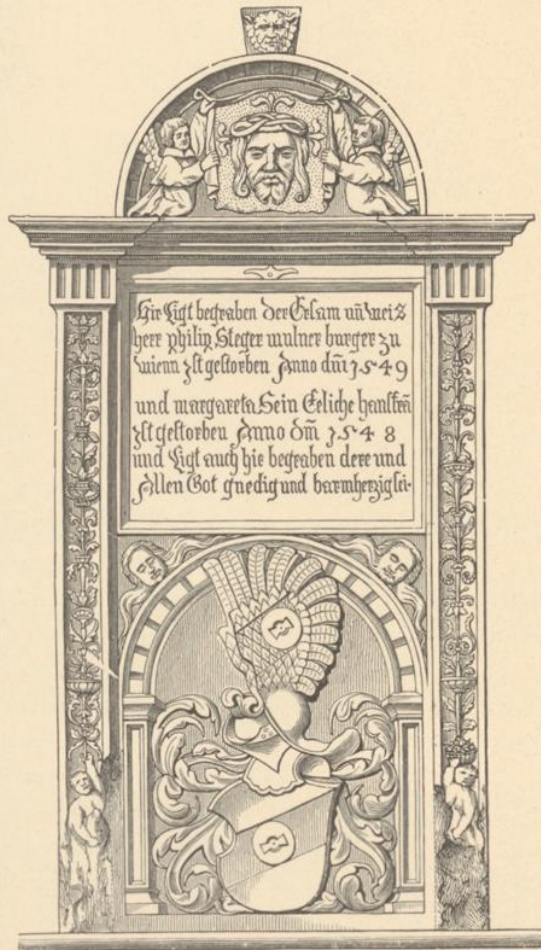 Hir Ligt begraben der Ersam uñ weis
herr philip Steger mulner burger zu
wienn Ist gestorben Anno dm̃ 1549
und margareta Sein Eeliche hausfrã
Ist gestorben Anno dm̃ 1548
und Ligt auch hie begraben dere und
Allen Got gnedig und barmherzig sei.